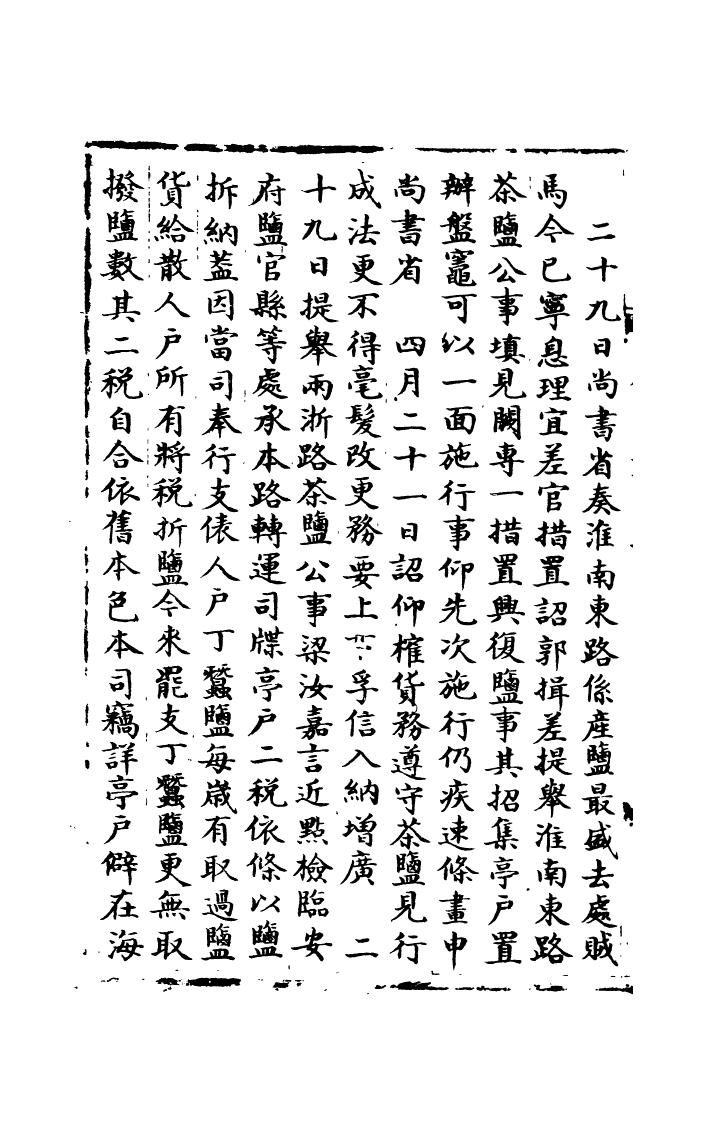 二十九日尚書省奏淮南東路係產鹽最盛去處賊
馬今已寧息理宜差官措置詔郭揖差提舉淮南東路
茶鹽公事填見闕專一措置興復鹽事其招集亭戶置
辦盤竈可以一面施行事仰先次施行仍疾速條畫申
尚書省　四月二十一日詔仰榷貨務遵守茶鹽見行
成法更不得毫髮改更務要上下孚信入納增廣　二
十九日提舉兩浙路茶鹽公事梁汝嘉言近點檢臨安
府鹽官縣等處承本路轉運司牒亭戶二税依條以鹽
拆納蓋因當司奉行支俵人戶丁蠶鹽每歲有取過鹽
貨給散人戶所有將税折鹽今來罷支丁蠶鹽更無取
撥鹽數其二税自合依舊本色本司竊詳亭戶僻在海